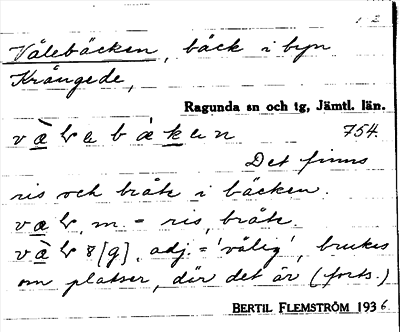 1 2
Vålebäcken, bäck i byn
Krångede,
Ragunda sn och tg, Jämtl. län.
754.
Det finns
ris och bråte i bäcken.
m. = ris, bråte
adj. = 'vålig', brukas
om platser, där det är (forts.)
BERTIL FLEMSTRÖM 1936.